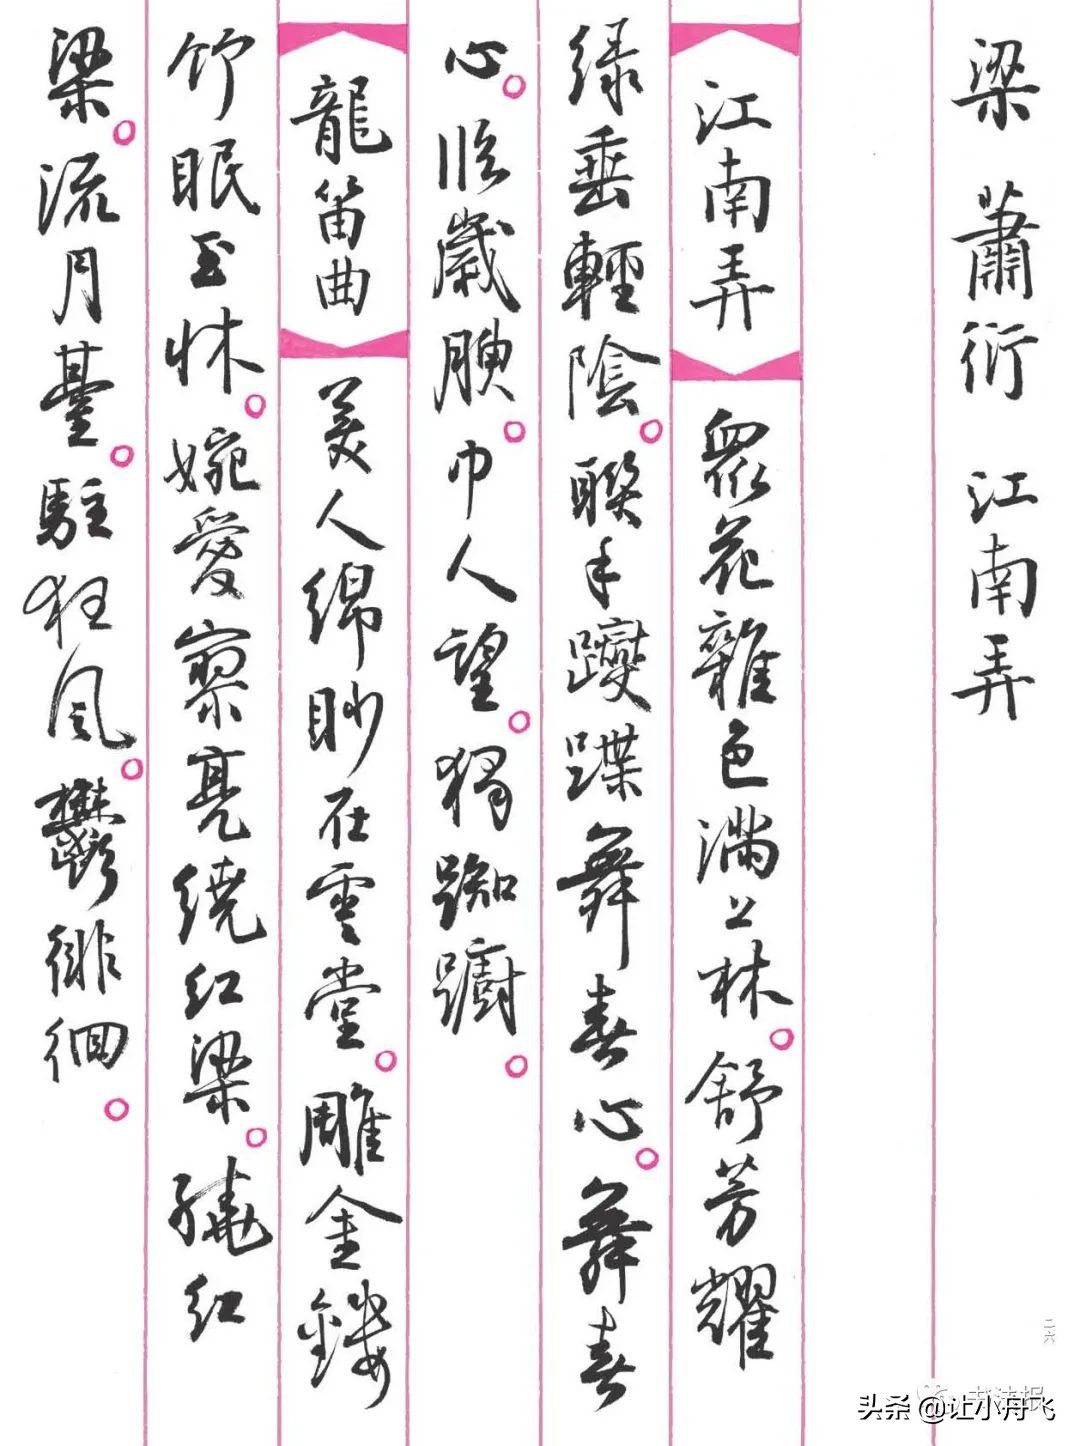 梁 蕭衍 江南弄
江南弄 衆花雜色滿上林。舒芳耀
綠垂輕陰。聯手躞蹀舞春心。舞春
心。臨歲腴。中人望。獨踟躕
。
龍笛曲 美人綿眇在雲堂。雕金鏤
竹眠玉牀。婉愛寥亮繞紅梁。繞紅
梁。流月臺。駐狂風。鬱徘徊。
二六
书法报
头条 @让小舟飞